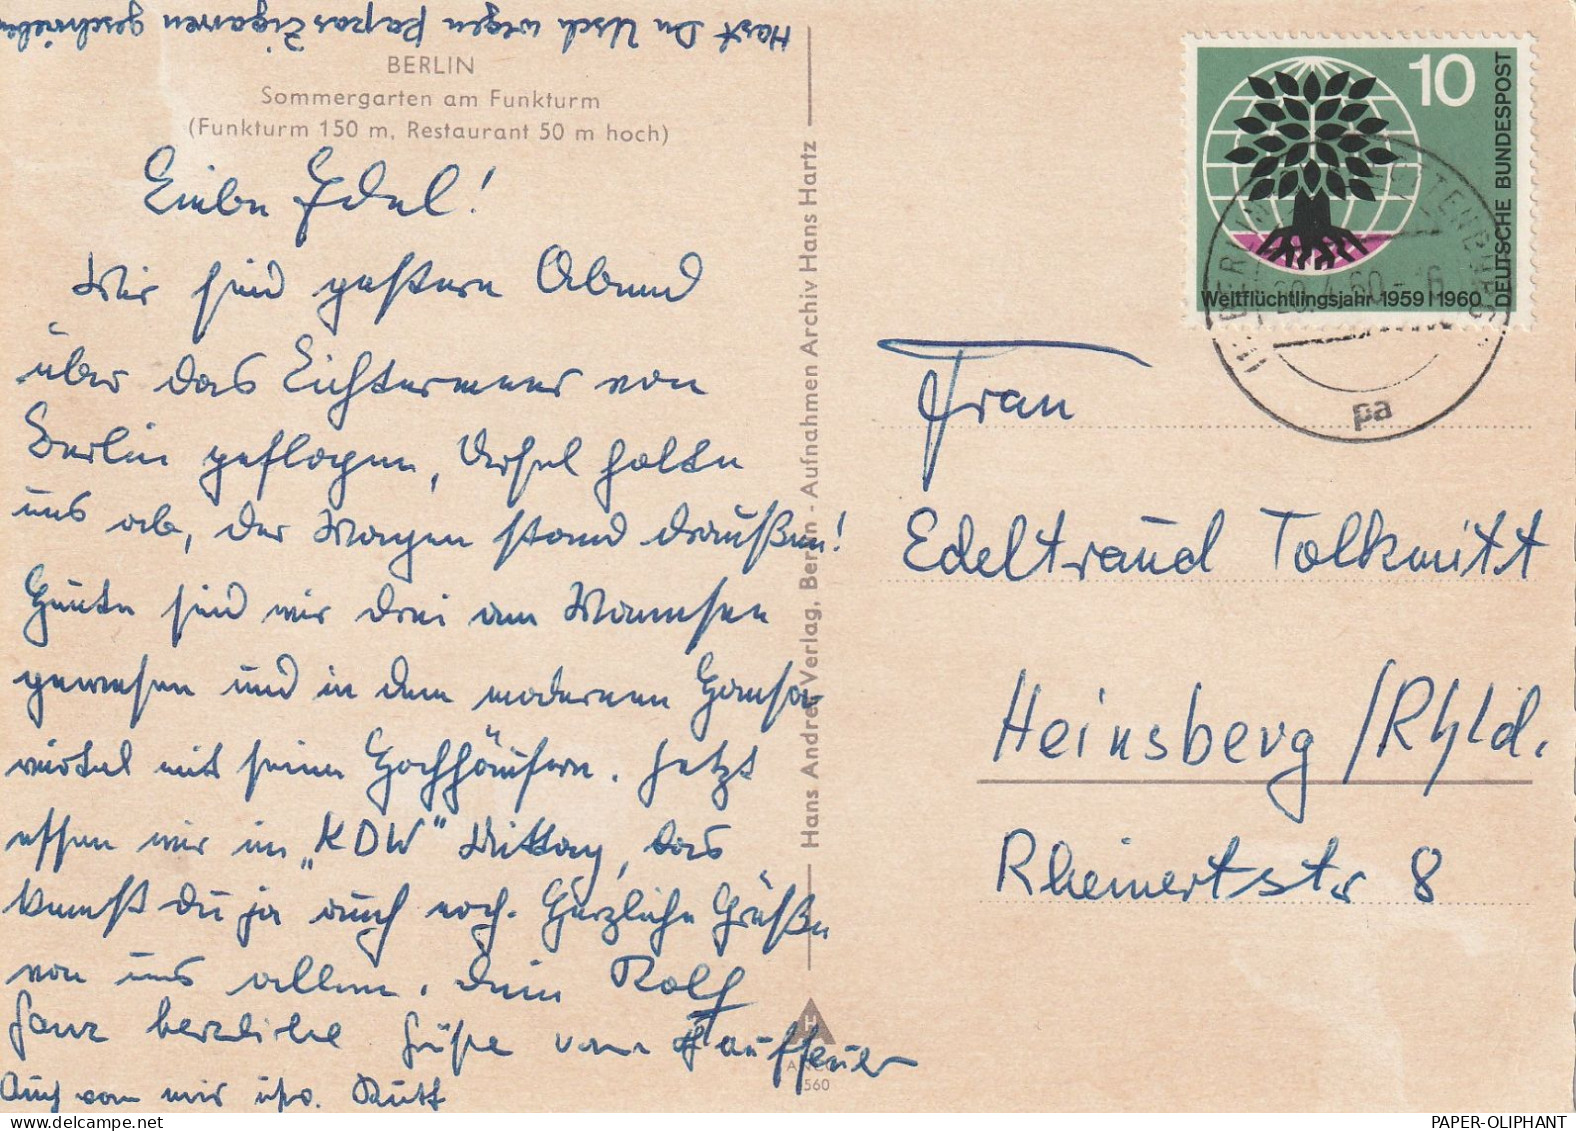 Hast Du Usch wegen Papas Zigarren geschrieben
BERLIN
Sommergarten am Funkturm
(Funkturm 150 m, Restaurant 50 m hoch)
Liebe Edel!
Wir sind gestern Abend
über das Lichtermeer von
Berlin geflogen, Detzel holte
uns ab, der Wagen stand draußen!
Heute sind wir drei am Wannsee
gewesen und in dem modernen Hansa-
viertel mit seinen Hochhäusern. Jetzt
essen wir im „KDW" Mittag, das
kennst Du ja auch noch. Herzliche Grüße
von uns allen. Dein Rolf
Ganz herzliche Grüße von
Auch von mir Ruth
Hans Andres Verlag, Berlin - Aufnahmen Archiv Hans Hartz
H
560
10
DEUTSCHE BUNDESPOST
Weltflüchtlingsjahr 1959|1960
20.4.60-16
pa
Frau
Edeltraud Tolkmitt
Heinsberg/Rhld.
Rheinertstr 8
PAPER-OLIPHANT